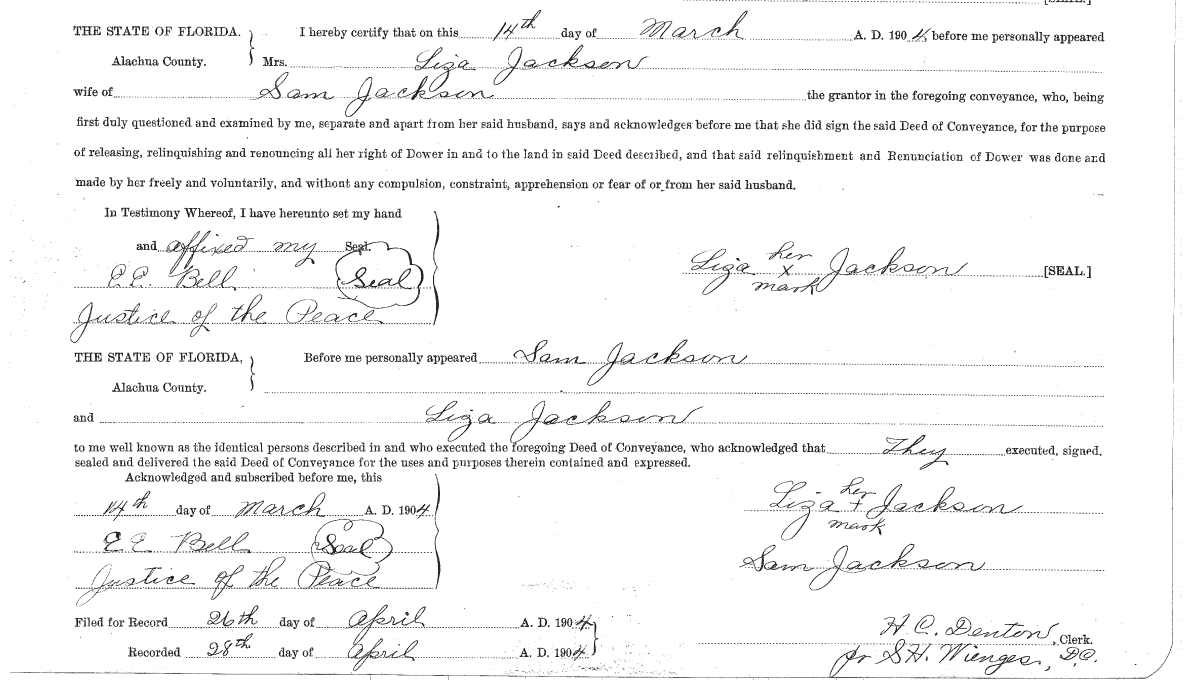 [SEAL.]
THE STATE OF FLORIDA. } I hereby certify that on this 14th day of March A. D. 1904 before me personally appeared
Alachua County. Mrs. Liza Jackson
wife of Sam Jackson the grantor in the foregoing conveyance, who, being
first duly questioned and examined by me, separate and apart from her said husband, says and acknowledges before me that she did sign the said Deed of Conveyance, for the purpose
of releasing, relinquishing and renouncing all her right of Dower in and to the land in said Deed described, and that said relinquishment and Renunciation of Dower was done and
made by her freely and voluntarily, and without any compulsion, constraint, apprehension or fear of or from her said husband.
In Testimony Whereof, I have hereunto set my hand
and affixed my Seal.
E.E. Bell Seal
Justice of the Peace
her
Liza x Jackson [SEAL.]
mark
THE STATE OF FLORIDA, } Before me personally appeared Sam Jackson
Alachua County.
and Liza Jackson
to me well known as the identical persons described in and who executed the foregoing Deed of Conveyance, who acknowledged that They executed, signed,
sealed and delivered the said Deed of Conveyance for the uses and purposes therein contained and expressed.
Acknowledged and subscribed before me, this
14th day of March A. D. 1904
E E Bell Seal
Justice of the Peace
her
Liza + Jackson
mark
Sam Jackson
Filed for Record 26th day of April A. D. 1904
Recorded 28th day of April A. D. 1904
H C. Denton, Clerk.
pr S.H. Wienges, D.C.